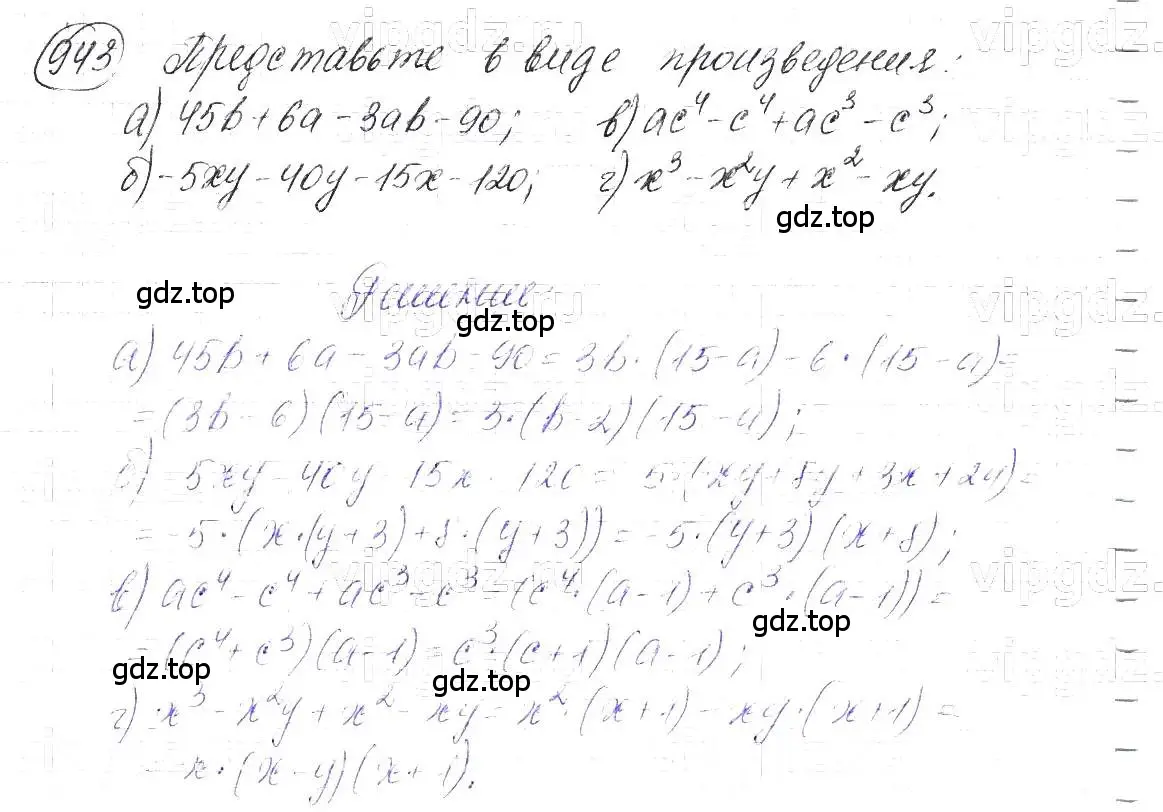 943 Представьте в виде произведения:
а) 45b+6a-3ab-90; в) ac⁴-c⁴+ac³-c³;
б) -5xy-40y-15x-120; г) x³-x²y+x²-xy.
gdz.top
gdz.top
Решение
gdz.top
а) 45b+6a-3ab-90=3b·(15-a)-6·(15-a)=
=(3b-6)(15-a)=3·(b-2)(15-a);
б) -5xy-40y-15x-120=-5·(xy+8y+3x+24)=
=-5·(x·(y+3)+8·(y+3))=-5·(y+3)(x+8);
в) ac⁴-c⁴+ac³-c³=(c⁴·(a-1)+c³·(a-1))=
gdz.top
=(c⁴+c³)(a-1)=c³·(c+1)(a-1);
gdz.top
gdz.top
г) x³-x²y+x²-xy=x²·(x+1)-xy·(x+1)=
=x·(x-y)(x+1).
vipgdz.ru
vipgdz.
vipgdz.ru
vipgdz.
vipgdz.
vipgdz.